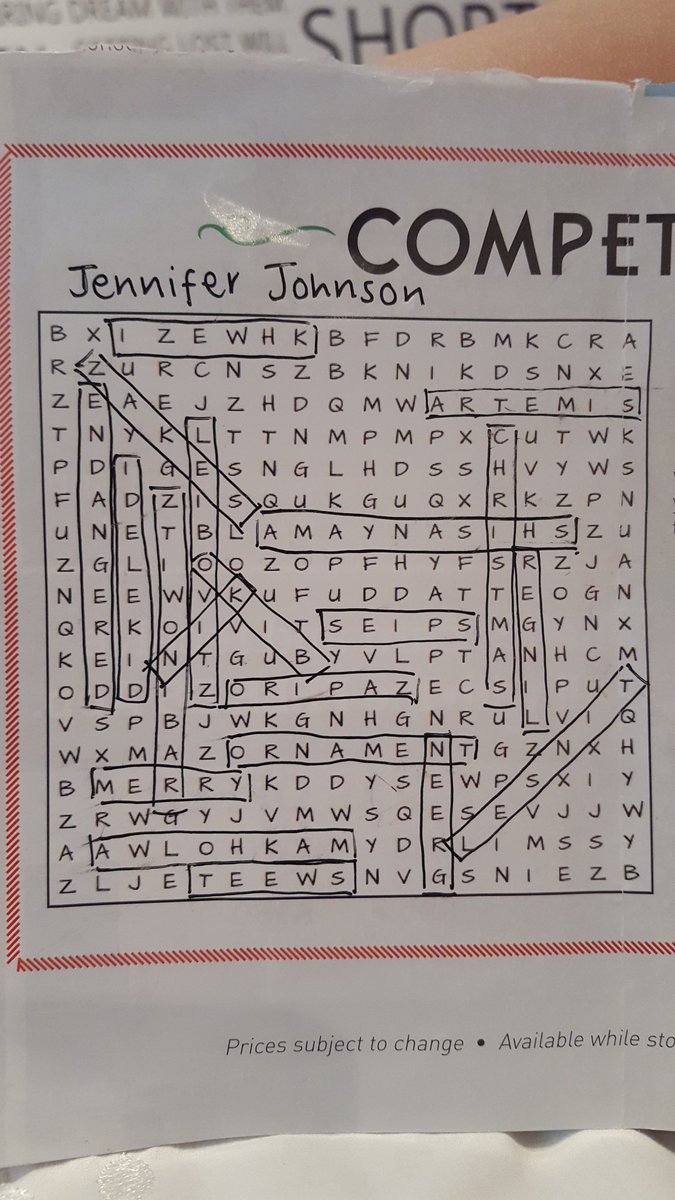 DREAM WITH
LOST WILL
SHORT
COMPET
Jennifer Johnson
B X I Z E W H K B F D R B M K C R A
R Z U R C N S Z B K N I K D S N X E
Z E A E J Z H D Q M W A R T E M I S
T N Y K L T T N M P M P X C U T W K
P D I G E S N G L H D S S H V Y W S
F A D Z I S Q U K G U Q X R K Z P N
U N E T B L A M A Y N A S I H S Z U
Z G L I O O Z O P F H Y F S R Z J A
N E E W V K U F U D D A T T E O G N
Q R K O I V I T S E I P S M G Y N X
K E I N T G U B Y V L P T A N H C M
O D D Y Z O R I P A Z E C S I P U T
V S P B J W K G N H G N R U L V I Q
W X M A Z O R N A M E N T G Z N X H
B M E R R Y K D D Y S E W P S X I Y
Z R W G Y J V M W S Q E S E V J J W
A A W L O H K A M Y D R L I M S S Y
Z L J E T E E W S N V G S N I E Z B
Prices subject to change • Available while sto